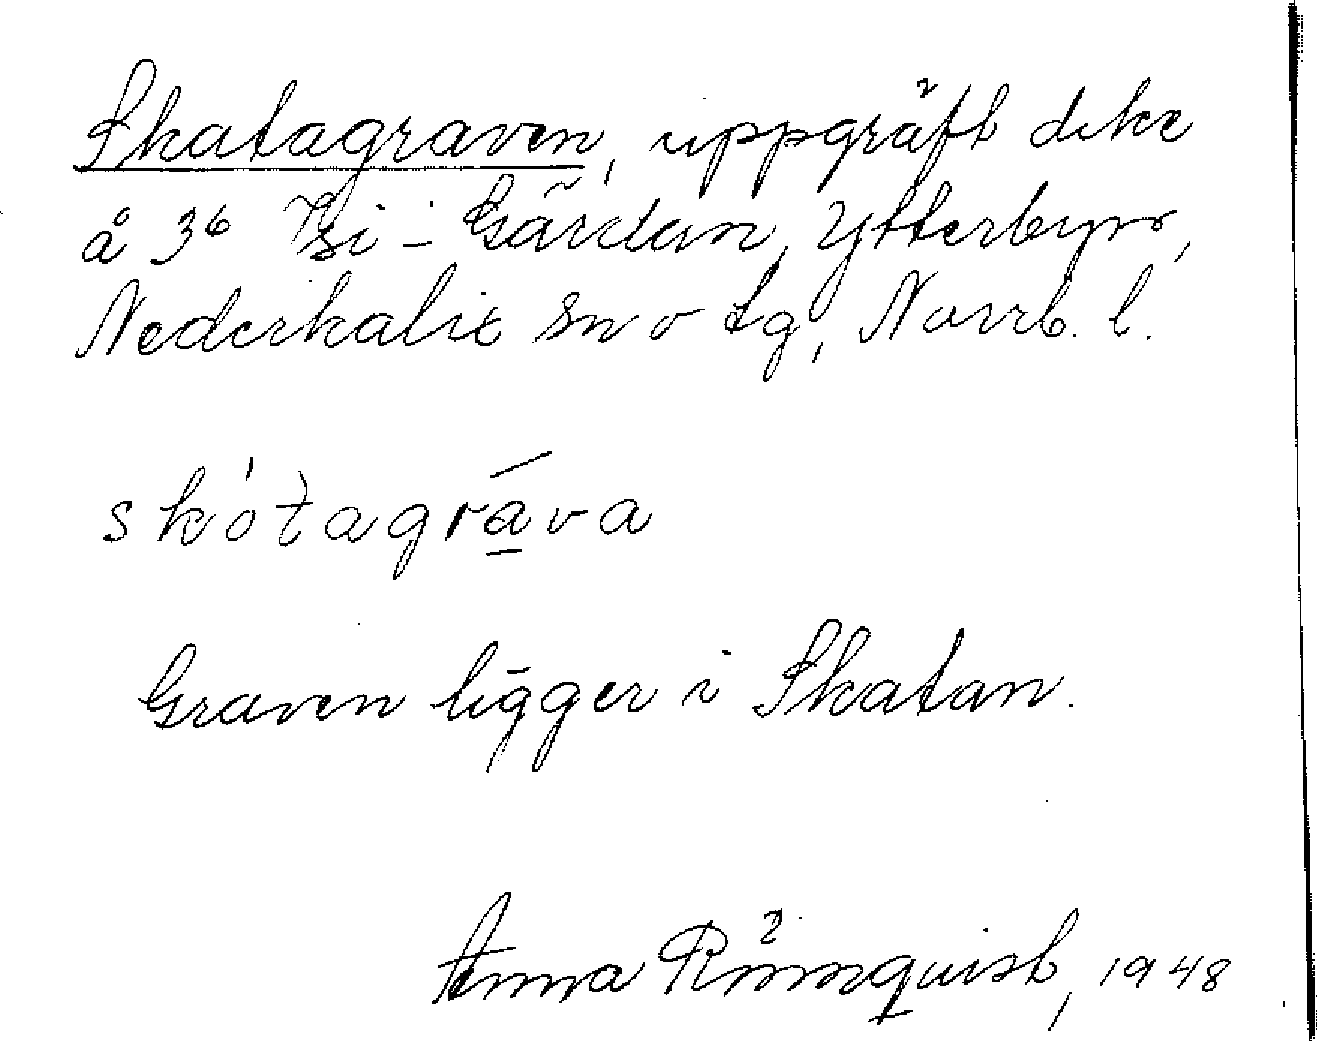 Skatagraven, uppgräft dike
å 36 Isi-Gärdan, Ytterbyn,
Nederkalix sn o tg, Norrb. l.
skótagráva
Graven ligger i Skatan.
Anna Rönnquist, 1948